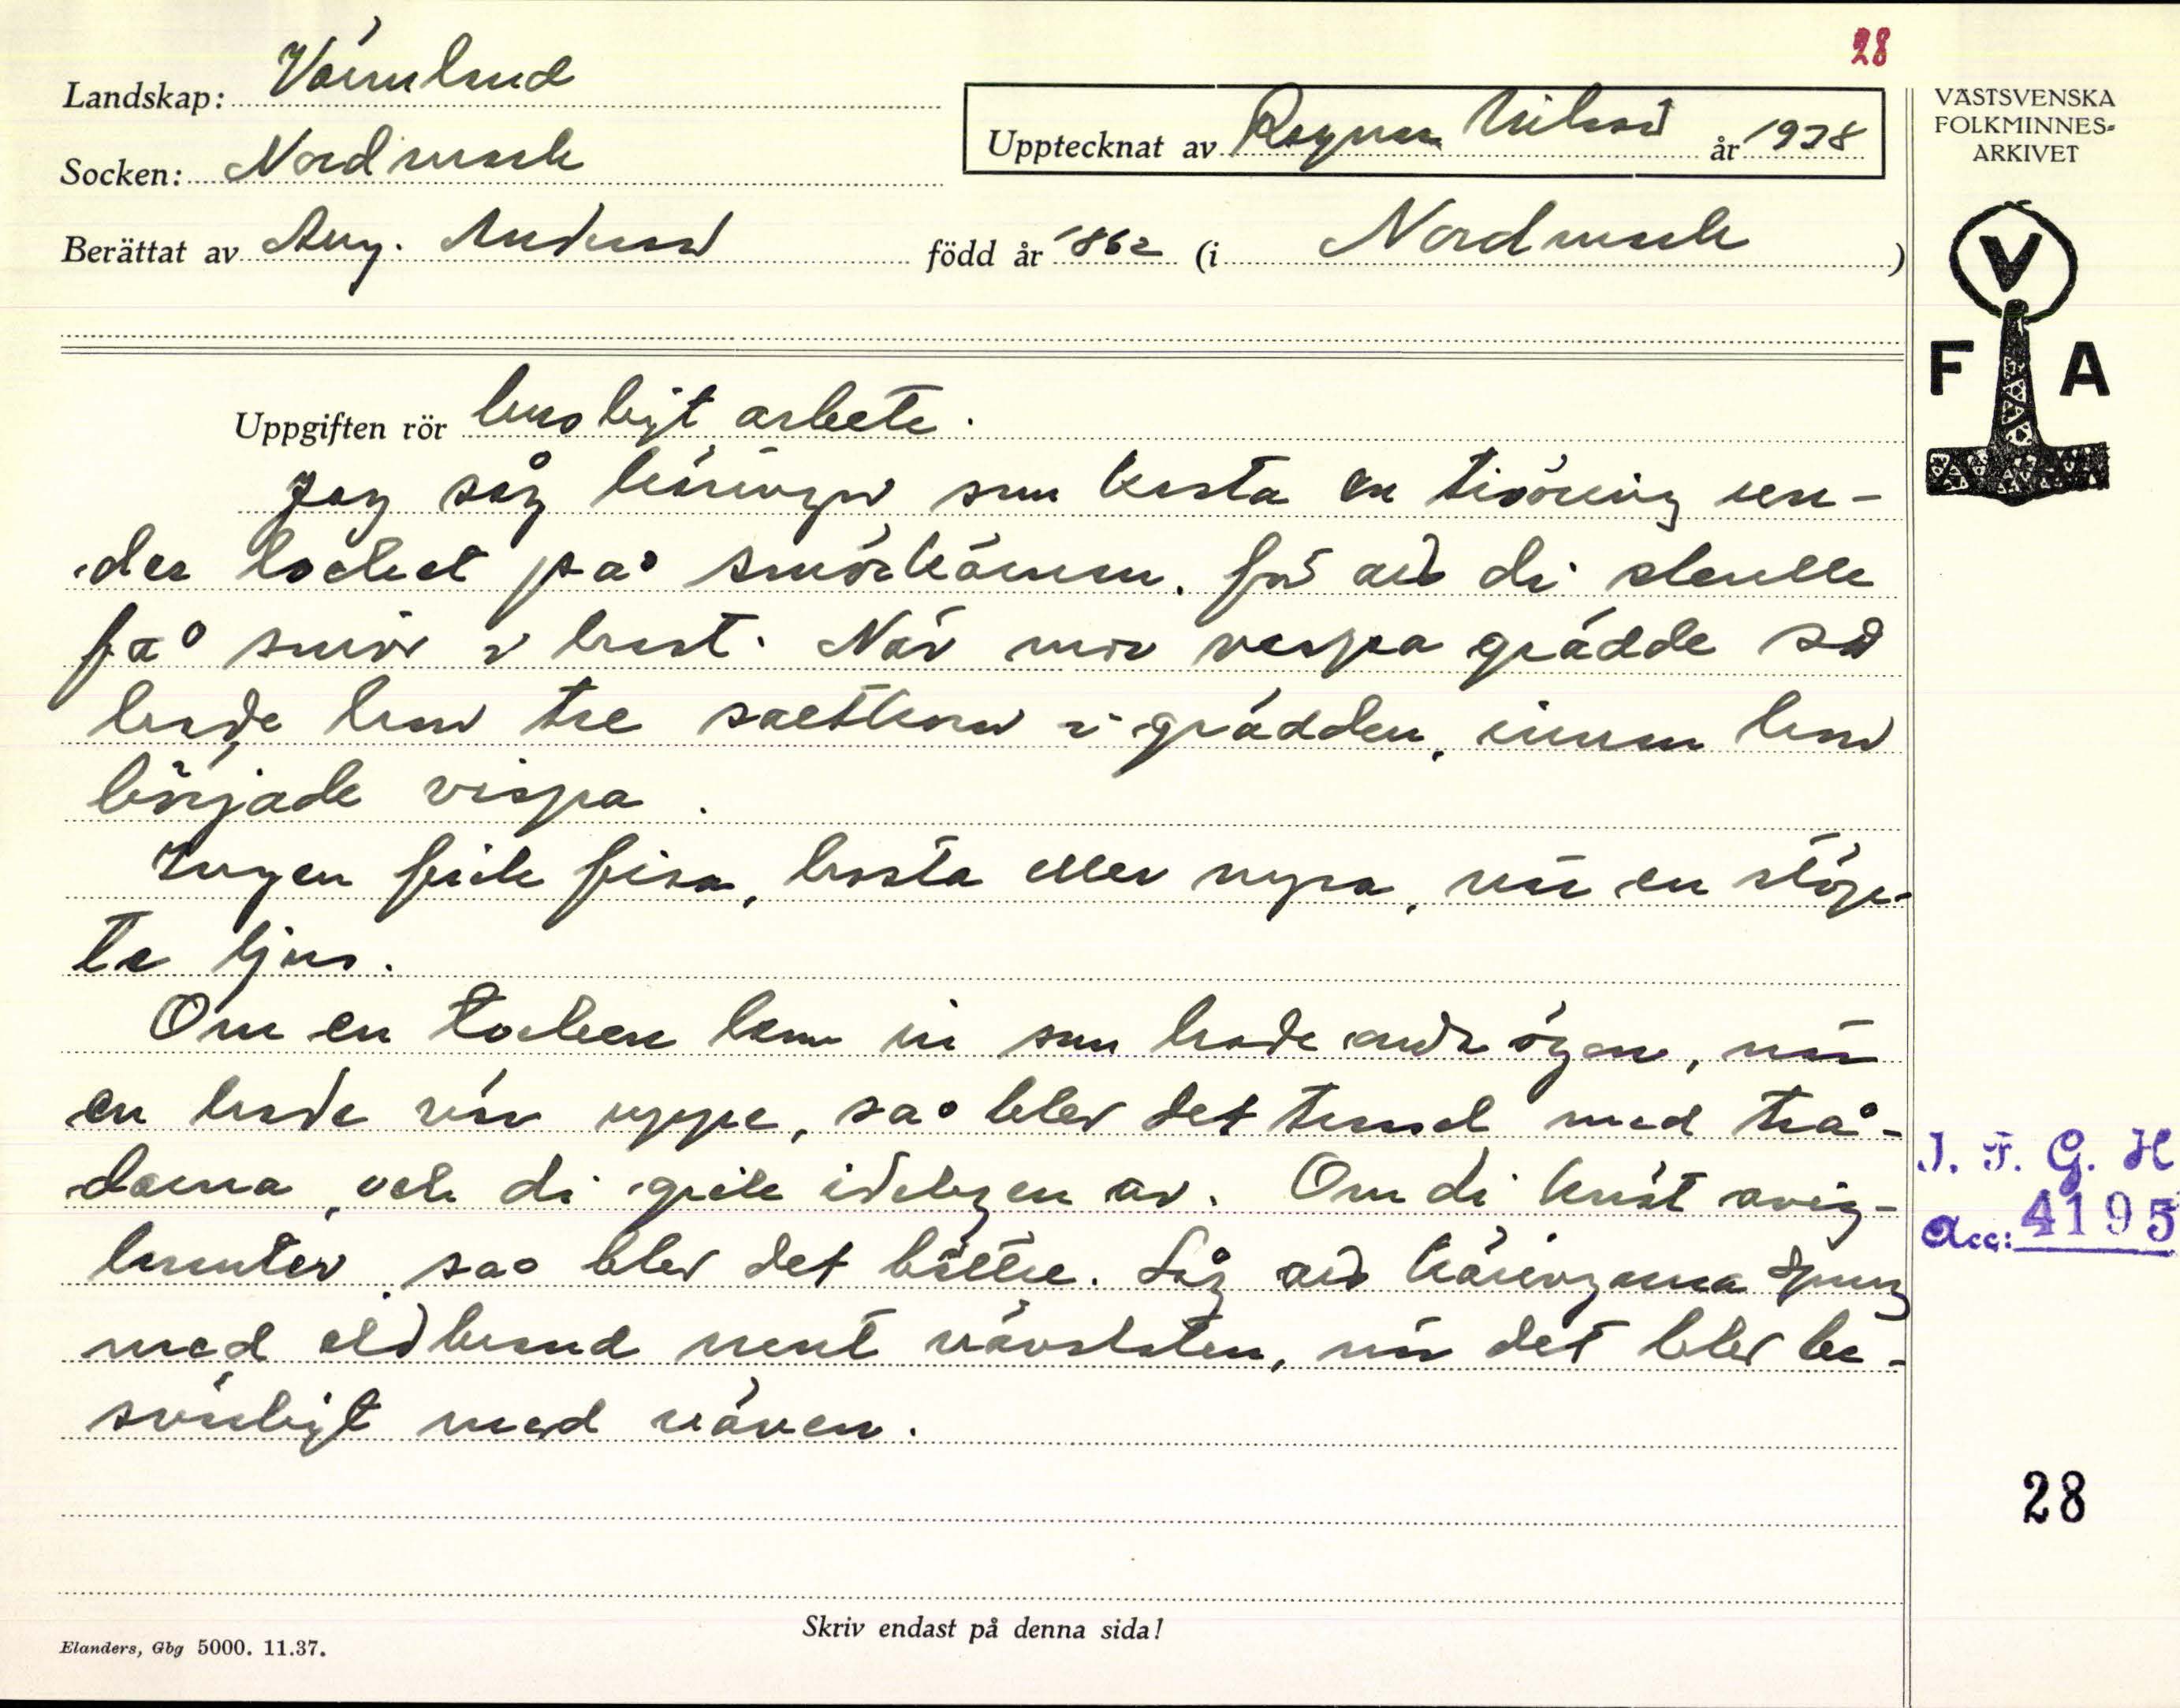 28
Landskap: Värmland
Socken: Nordmark
Upptecknat av Ragnar Nilsson år 1938
Berättat av Aug. Andersson född år 1862 (i Nordmark)
VÄSTSVENSKA
FOLKMINNES-
ARKIVET
V
F A
Uppgiften rör husligt arbete.
Jag såg käringer som kasta en tioöring un-
der locket på smörkärnan, för att di skulle
få smör i hast. När mor vispa grädde så
lade hon tre saltkorn i grädden, innan hon
började vispa.
Ingen fick fisa, hosta eller nysa, när en stöp-
te ljus.
Om en tocken kom in som hade onda ögon, när
en hade väv uppe, så blev det trassel med trå-
darna, och di gick idelegen av. Om di knöt avig-
knuter, så blev det bättre. Såg att käringarna sprang
med eldbrand runt vävstolen, när det blev be-
svärligt med väven.
I. F. G. H
Acc: 4195
28
Skriv endast på denna sida!
Elanders, Gbg 5000. 11.37.